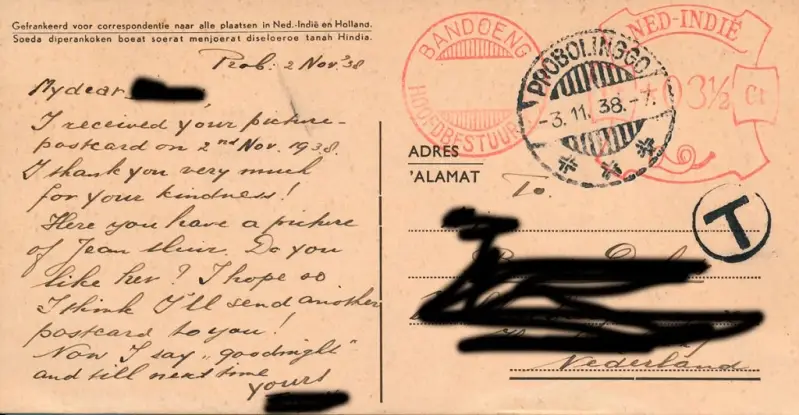 Gefrankeerd voor correspondentie naar alle plaatsen in Ned.-Indië en Holland.
Soeda diperankoken boeat soerat menjoerat diseloeroe tanah Hindia.
Prob. 2 Nov. '38
My dear
I received your picture-
postcard on 2nd Nov. 1938.
I thank you very much
for your kindness!
Here you have a picture
of Jean Muir. Do you
like her? I hope so.
I think I'll send another
postcard to you!
Now I say „goodnight"
and till next time
yours
BANDOENG
HOOFDBESTUUR
PROBOLINGGO
-3.11.38.-7.
NED-INDIË
03½ Ct
ADRES
'ALAMAT
To.
T
Nederland